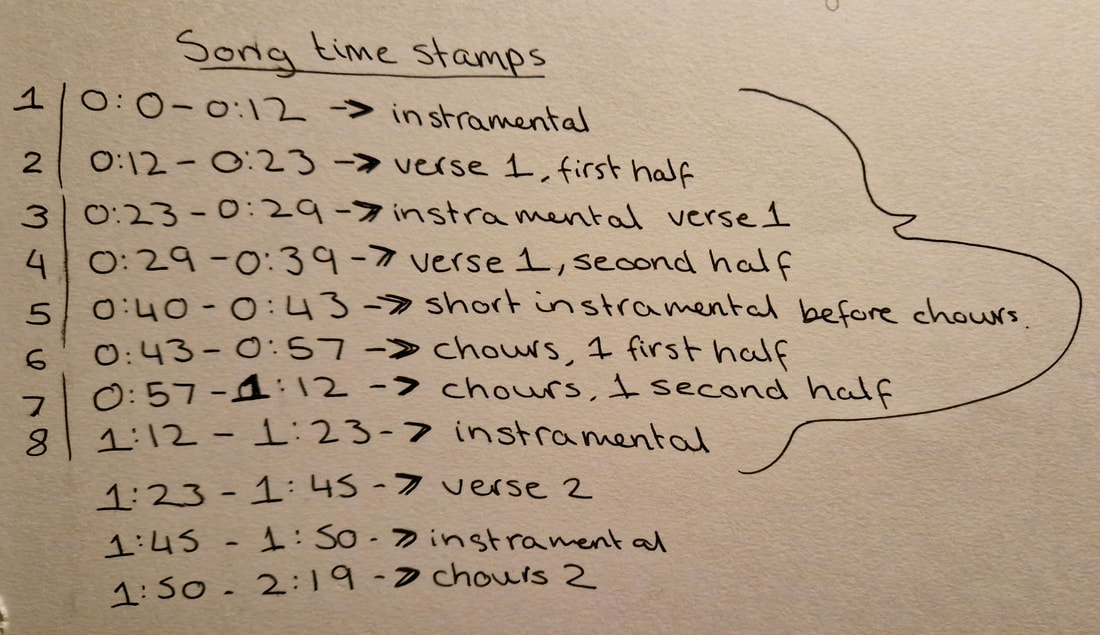 Song time stamps
1 | 0:0 - 0:12 -> instramental
2 | 0:12 - 0:23 -> verse 1, first half
3 | 0:23 - 0:29 -> instramental verse 1
4 | 0:29 - 0:39 -> verse 1, second half
5 | 0:40 - 0:43 -> short instramental before chours.
6 0:43 - 0:57 -> chours, 1 first half
7 | 0:57 - 1:12 -> chours, 1 second half
8 | 1:12 - 1:23 -> instramental
1:23 - 1:45 -> verse 2
1:45 - 1:50 -> instramental
1:50 - 2:19 -> chours 2